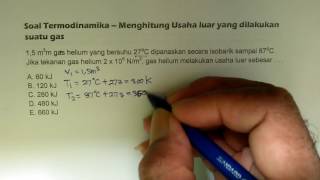 Soal Termodinamika – Menghitung Usaha luar yang dilakukan
suatu gas
1,5 m³m gas helium yang bersuhu 27⁰C dipanaskan secara isobarik sampai 87⁰C.
Jika tekanan gas helium 2 x 10⁵ N/m², gas helium melakukan usaha luar sebesar ....
A. 60 kJ
B. 120 kJ
C. 280 kJ
D. 480 kJ
E. 660 kJ
V₁ = 1,5m³
T₁ = 27°C + 273 = 300 K
T₂ = 87°C + 273 = 360